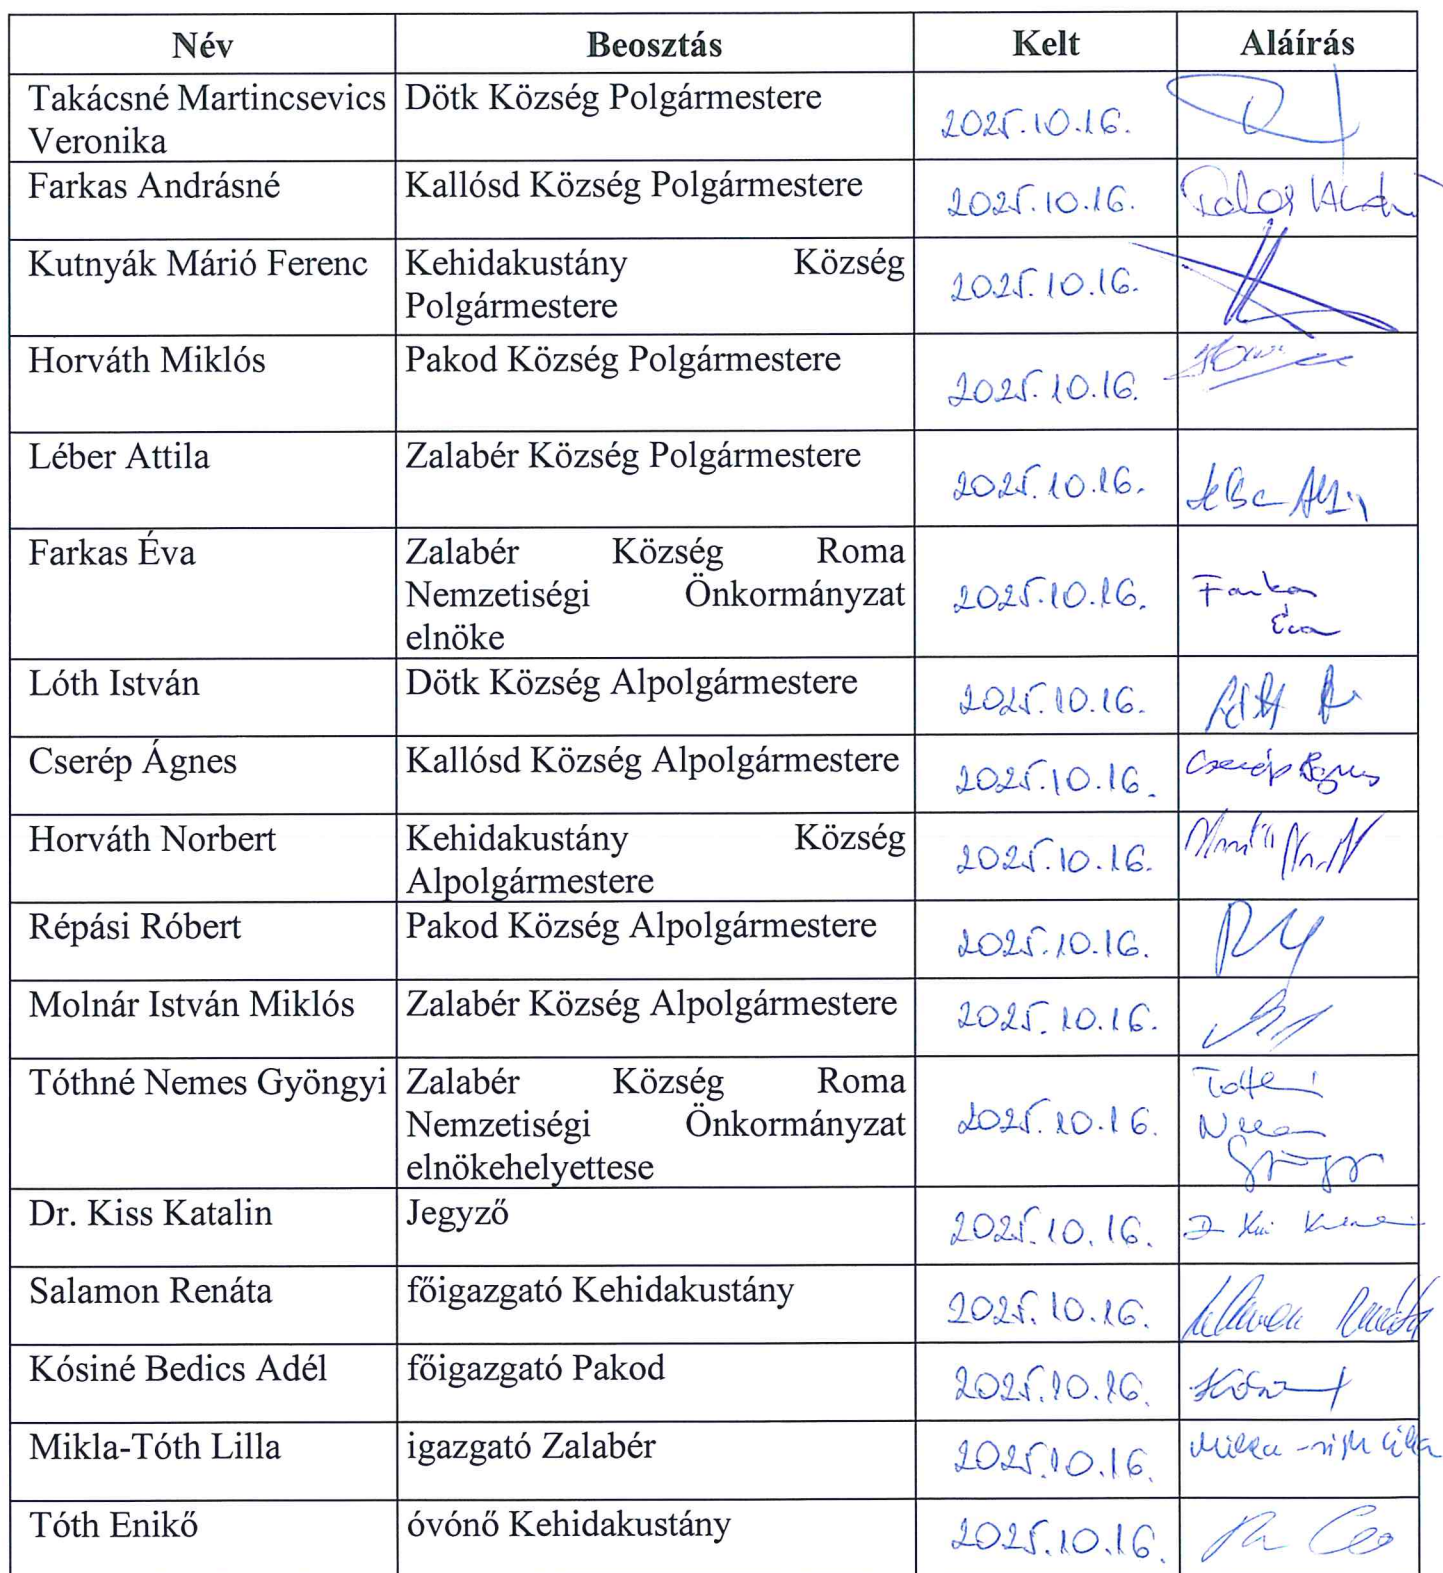 Név Beosztás Kelt Aláírás
Takácsné Martincsevics Dötk Község Polgármestere 2025.10.16.
Veronika
Farkas Andrásné Kallósd Község Polgármestere 2025.10.16.
Kutnyák Márió Ferenc Kehidakustány Község 2025.10.16.
Polgármestere
Horváth Miklós Pakod Község Polgármestere 2025.10.16.
Léber Attila Zalabér Község Polgármestere 2025.10.16.
Farkas Éva Zalabér Község Roma
Nemzetiségi Önkormányzat 2025.10.16. Farkas
elnöke Éva
Lóth István Dötk Község Alpolgármestere 2025.10.16.
Cserép Ágnes Kallósd Község Alpolgármestere 2025.10.16. Cserép Ágnes
Horváth Norbert Kehidakustány Község 2025.10.16.
Alpolgármestere
Répási Róbert Pakod Község Alpolgármestere 2025.10.16.
Molnár István Miklós Zalabér Község Alpolgármestere 2025.10.16.
Tóthné Nemes Gyöngyi Zalabér Község Roma Tóthné
Nemzetiségi Önkormányzat 2025.10.16. Nemes
elnökehelyettese Gyöngyi
Dr. Kiss Katalin Jegyző 2025.10.16.
Salamon Renáta főigazgató Kehidakustány 2025.10.16. Salamon Renáta
Kósiné Bedics Adél főigazgató Pakod 2025.10.16.
Mikla-Tóth Lilla igazgató Zalabér 2025.10.16. Mikla-Tóth Lilla
Tóth Enikő óvónő Kehidakustány 2025.10.16.